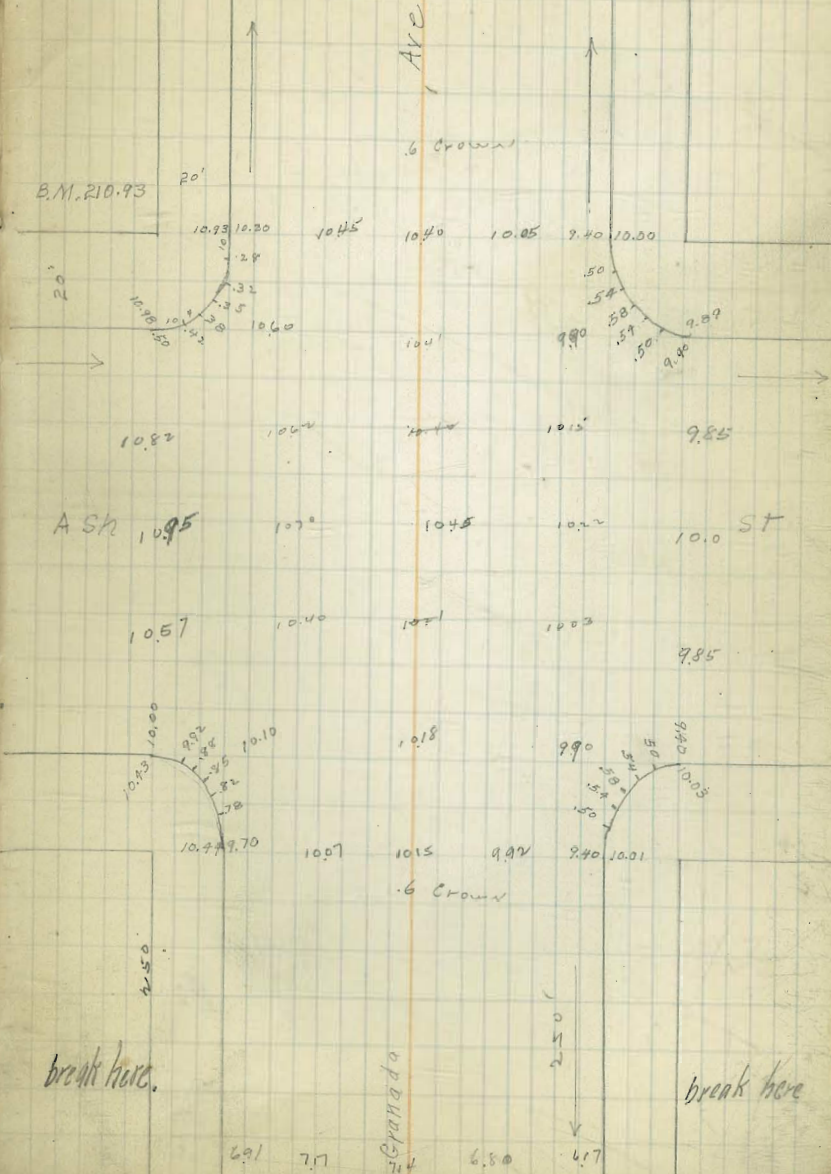 Ave
.6 Crown
B.M. 210.93
20'
10.93 10.20 10.45 10.40 10.05 9.40 10.00
.28
.32
.35
.38
.42
.50
10.98
20'
10.60
10.41
9.90
.50
.54
.58
.54
.50
9.90
9.89
10.82 10.62 10.40 10.15 9.85
Ash 10.95 10.70 10.45 10.22 10.0 ST
10.57 10.40 10.21 10.03
9.85
10.00
10.43
9.92
.88
.85
.82
.78
10.10 10.18 9.90
.54
.50
9.40
10.03
.58
.54
.50
10.44 9.70 10.07 10.15 9.92 9.40 10.01
.6 Crown
250
250'
break here.
Granada
break here
6.91 7.17 7.14 6.80 6.17